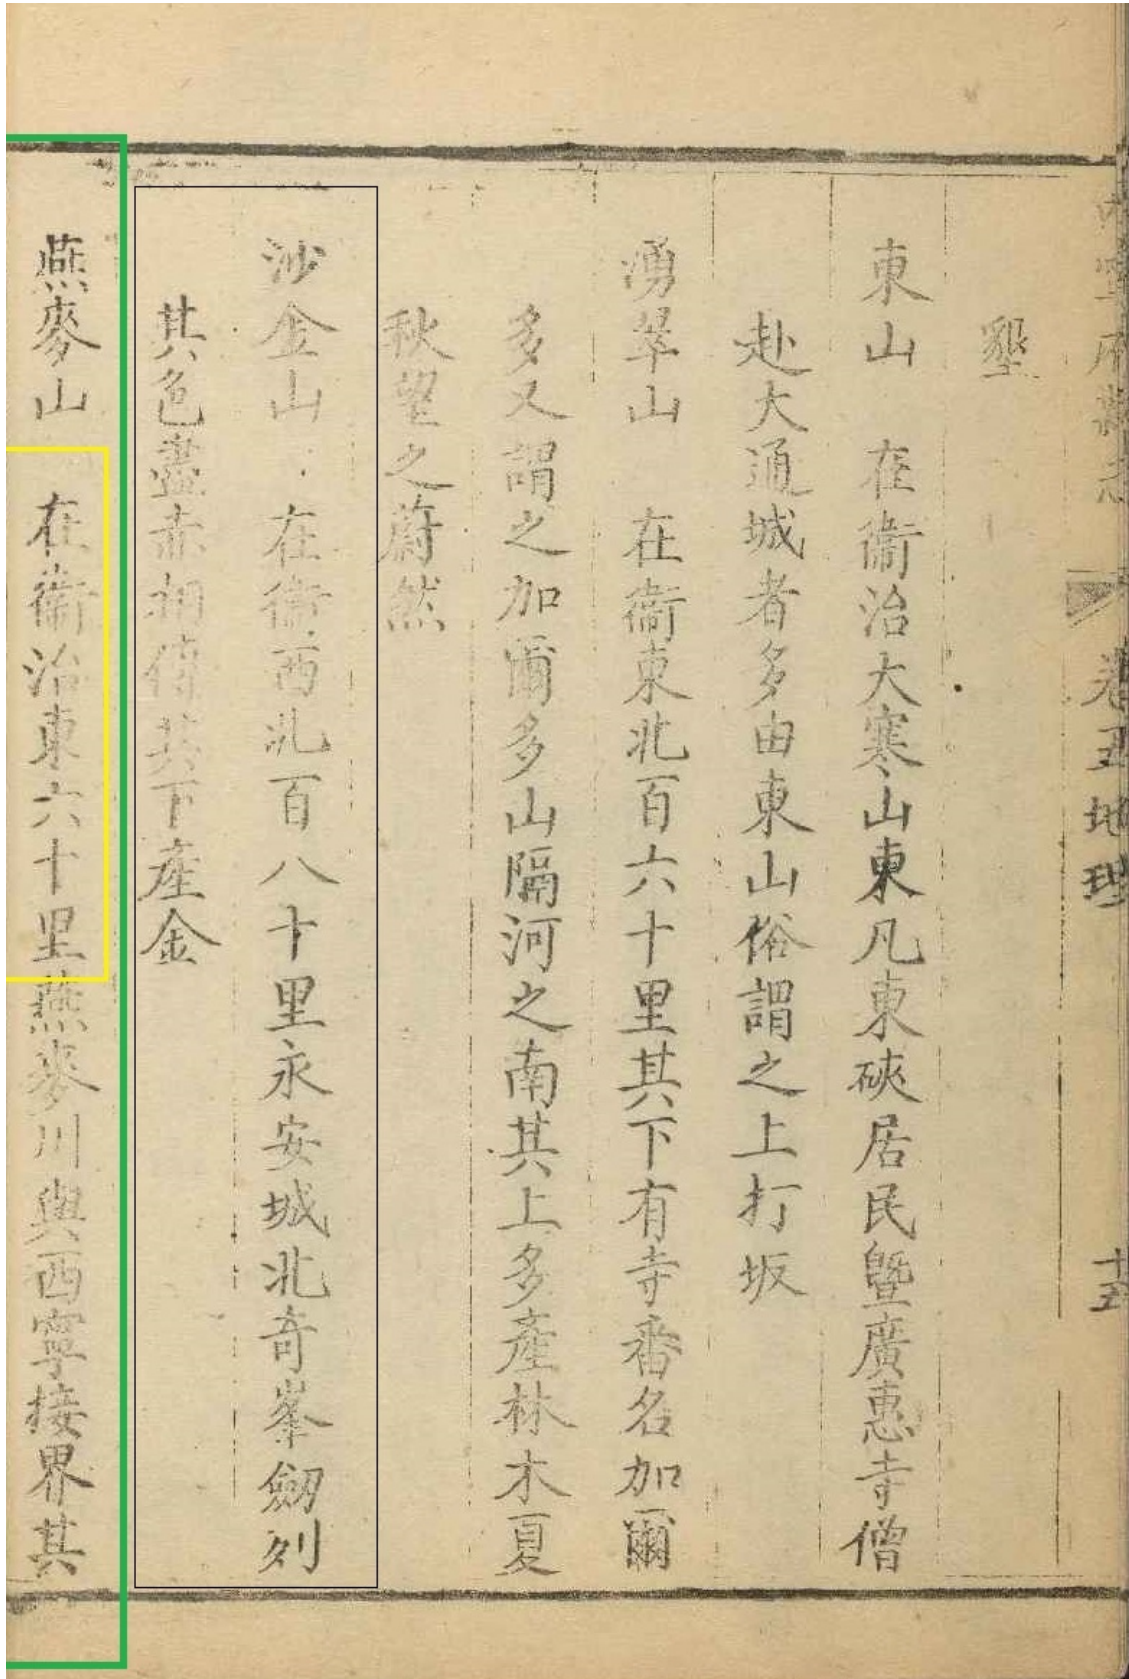 墾
東山　在衞治大寒山東凡東硤居民曁廣惠寺僧
赴大通城者多由東山俗謂之上打坂
湧翠山　在衞東北百六十里其下有寺番名加爾
多又謂之加爾多山隔河之南其上多產林木夏
秋望之蔚然
沙金山　在衞西北百八十里永安城北奇峯劒列
其色盡赤相傳其下產金
燕麥山　在衞治東六十里燕麥川與西寧接界其
卷五地理
十五